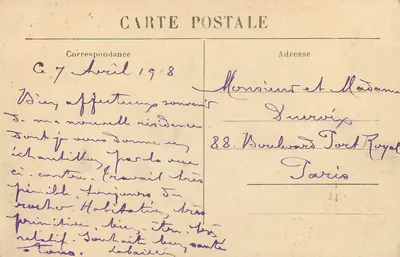 CARTE POSTALE
Correspondance
Adresse
C. 7 Avril 1918
Bien affectueux souvenir
de ma nouvelle résidence
Dont je vous donne un
échantillon par la vue
ci-contre. Travail très
pénible, toujours du
rocher. Habitation très
primitive,
relatif. Souhaite bonne santé
à tous.
Monsieur et Madame
88. Boulevard Port Royal
Paris